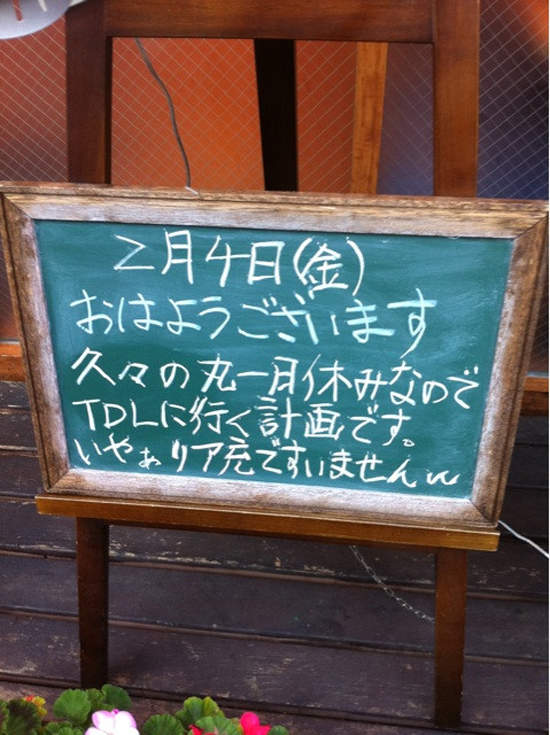 2月4日(金)
おはようございます
久々の丸一日休みなので
TDLに行く計画です。
いやぁリア充ですいませんww